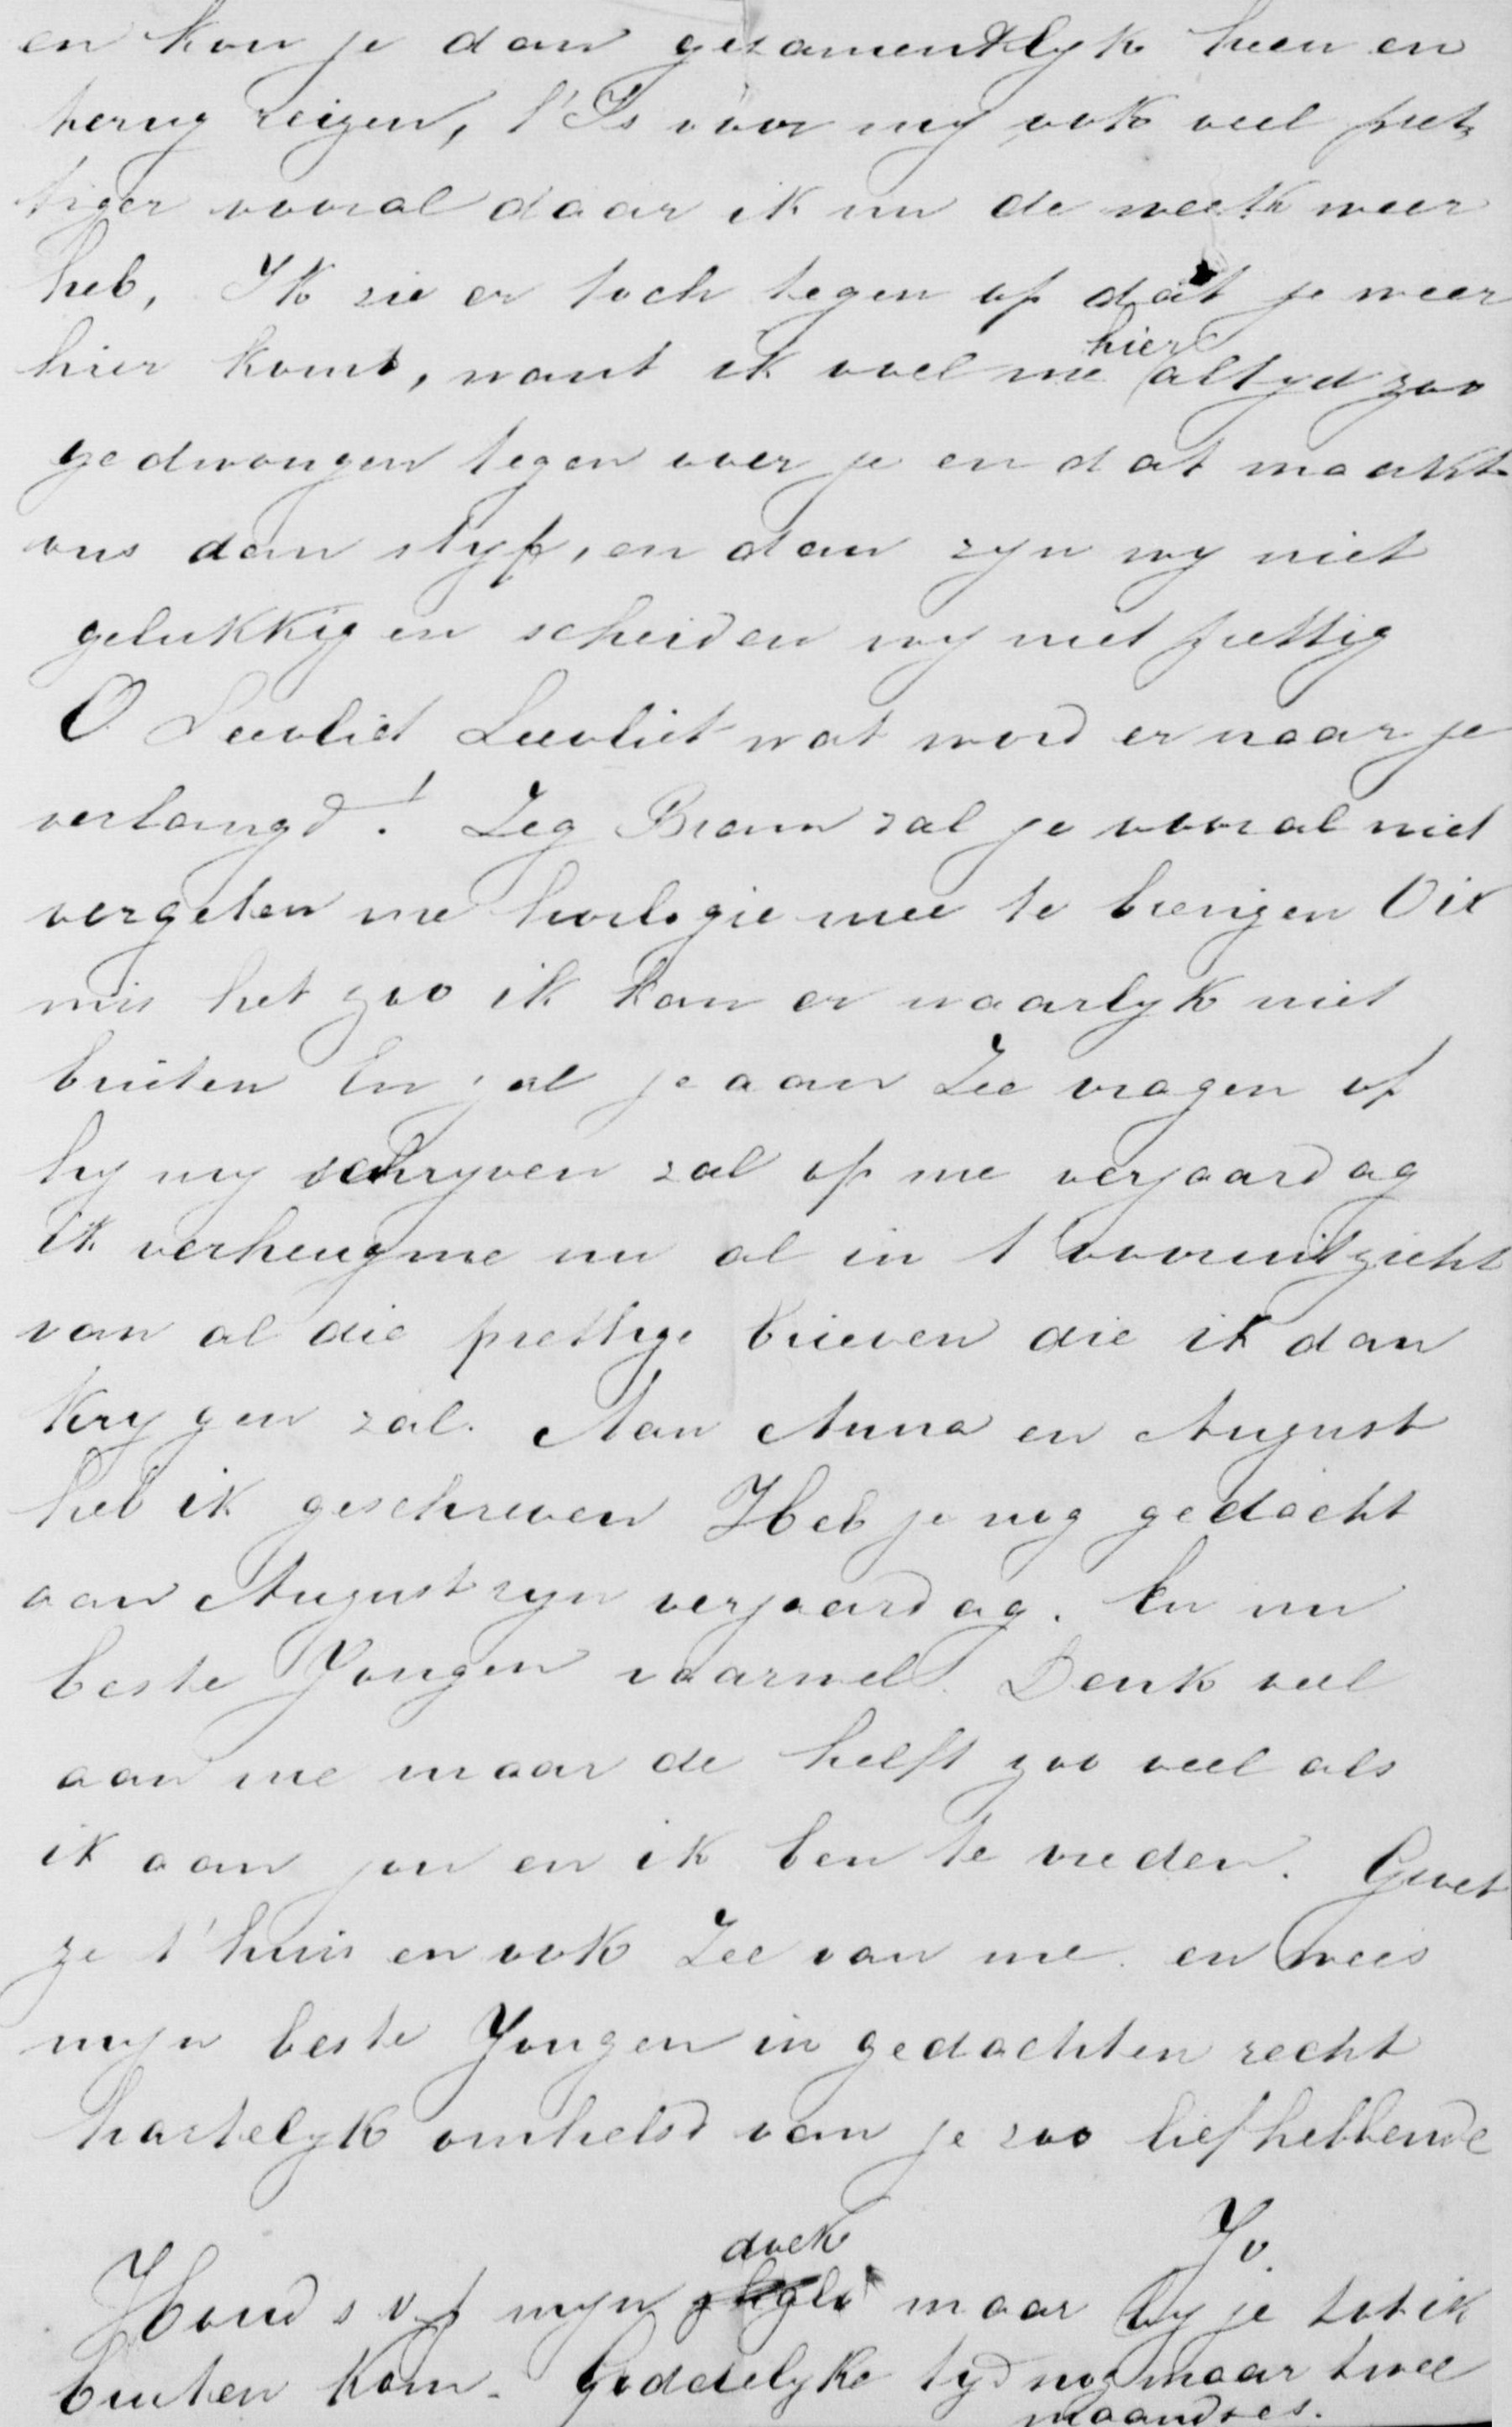 en kon je dan gezamentlyk heen en
terug reizen, t'Is voor my ook veel pret
tiger vooral daar ik nu de week weer
heb, Ik zie er toch tegen op dat je weer
hier komt, want ik voel me hier altyd zoo
gedwongen tegen over je en dat maakt
ons dan styf, en dan zyn wy niet
gelukkig en scheiden wy niet prettig
O Leevliet Leevliet wat word er naar je
verlangd! Zeg Bram zal je vooral niet
vergeten me horlogie mee te brengen O ik
mis het zoo ik kan er waarlyk niet
buiten En zal je aan Zee vragen of
hy my schryven zal op me verjaardag
Ik verheug me nu al in t vooruitzicht
van al die prettige brieven die ik dan
krygen zal. Aan Anna en August
heb ik geschreven Heb je nog gedacht
aan August zyn verjaardag. En nu
beste Jongen vaarwel. Denk veel
aan me maar de helft zoo veel als
ik aan jou en ik ben te vreden. Groet
ze t'huis en ook Zee van me. en wees
myn beste Jongen in gedachten recht
hartelyk omhelsd van je zoo liefhebbende
Jo.
Houd s v p myn doek maar by je tot ik
buiten kom. Goddelyke tyd nog maar twee
maandjes.